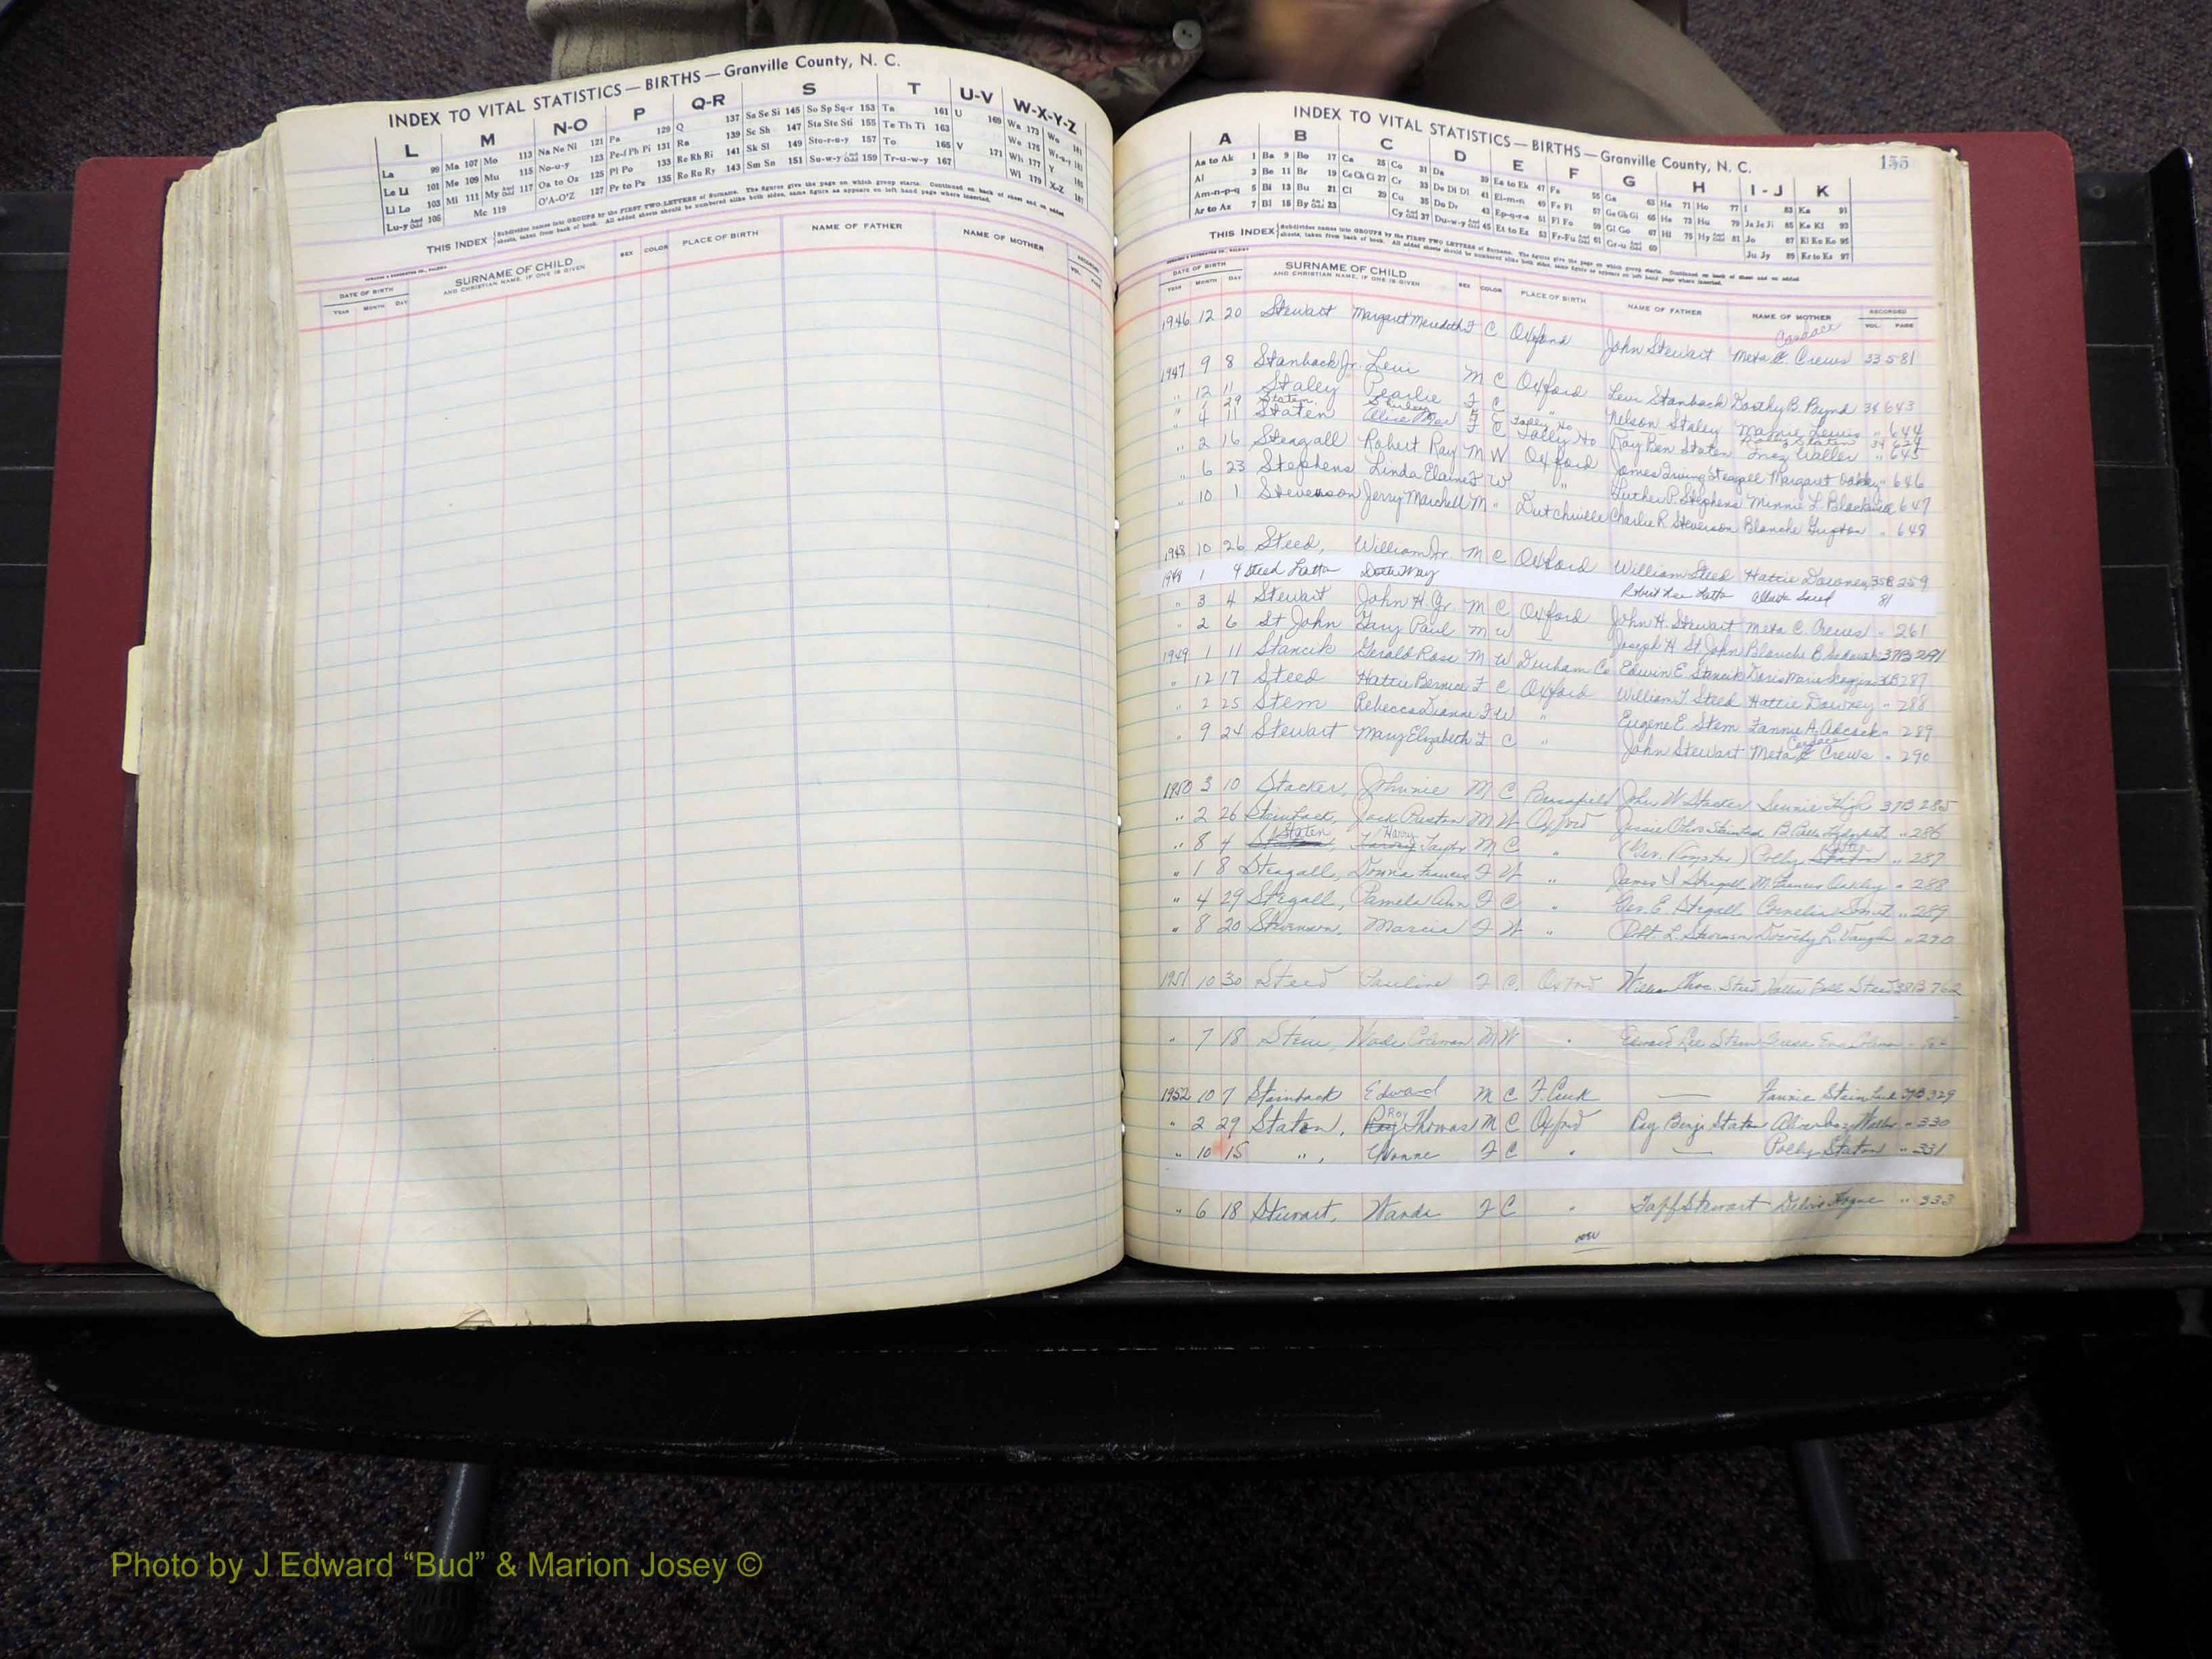 INDEX TO VITAL STATISTICS — BIRTHS — Granville County, N. C.
L M N-O P Q-R S T U-V W-X-Y-Z
La 99 Ma 107 Mo 113 Na Ne Ni 121 Pa 129 Q 137 Sa Se Si 145 So Sp Sq-r 153 Ta 161 U 169 Wa 173 Wo 181
Le Li 101 Me 109 Mu 115 No-u-y 123 Pe-f Ph Pi 131 Ra 139 Sc Sh 147 Sta Ste Sti 155 Te Th Ti 163 We 175
Li Lo 103 Mi 111 My And Odd 117 Oa to Oz 125 Pl Po 133 Re Rh Ri 141 Sk Sl 149 Sto-r-u-y 157 To 165 V 171 Wh 177 Y
Lu-y And Odd 105 Mc 119 O'A-O'Z 127 Pr to Pz 135 Ro Ru Ry 143 Sm Sn 151 Su-w-y And Odd 159 Tr-u-w-y 167 Wi 179 X-Z 187
THIS INDEX Subdivides names into GROUPS by the FIRST TWO LETTERS of Surname. The figures give the page on which group starts. Continued on back of sheet and on added
sheets, taken from back of book. All added sheets should be numbered alike both sides, same figure as appears on left hand page where inserted.
DATE OF BIRTH SURNAME OF CHILD SEX COLOR PLACE OF BIRTH NAME OF FATHER NAME OF MOTHER RECORDED
YEAR MONTH DAY AND CHRISTIAN NAME, IF ONE IS GIVEN VOL. PAGE
INDEX TO VITAL STATISTICS — BIRTHS — Granville County, N. C. 155
A B C D E F G H I - J K
Aa to Ak 1 Ba 9 Bo 17 Ca 25 Co 31 Da 39 Ea to Ek 47 Fa 55 Ga 63 Ha 71 Ho 77 I 83 Ka 91
Al 3 Be 11 Br 19 Ce Ch Ci 27 Cr 33 De Di Dl 41 El-m-n 49 Fe Fi 57 Ge Gh Gi 65 He 73 Hu 79 Ja Je Ji 85 Ke Ki 93
Am-n-p-q 5 Bi 13 Bu 21 Cl 29 Cu 35 Do Dr 43 Ep-q-r-s 51 Fl Fo 59 Gl Go 67 Hi 75 Hy And Odd 81 Jo 87 Kl Kn Ko 95
Ar to Az 7 Bl 15 By And Odd 23 Cy And Odd 37 Du-w-y And Odd 45 Et to Ez 53 Fr-Fu And Odd 61 Gr-u And Odd 69 Ju Jy 89 Kr to Kz 97
THIS INDEX Subdivides names into GROUPS by the FIRST TWO LETTERS of Surname. The figures give the page on which group starts. Continued on back of sheet and on added
sheets, taken from back of book. All added sheets should be numbered alike both sides, same figure as appears on left hand page where inserted.
DATE OF BIRTH SURNAME OF CHILD SEX COLOR PLACE OF BIRTH NAME OF FATHER NAME OF MOTHER RECORDED
YEAR MONTH DAY AND CHRISTIAN NAME, IF ONE IS GIVEN VOL. PAGE
1946 12 20 Stewart Margaret Meredith F C Oxford John Stewart Meta C. Crews 33 581
1947 9 8 Stanback Jr. Levi M C Oxford Levi Stanback Dorthy B. 34 643
" 12 11 Staley Pearlie F C " Nelson Staley Mamie Lewis " 644
" 29 Staten Shirley F C Tally Ho 34 624
" 4 11 Staten Alice Mae F C Tally Ho Roy Ben Staten Inez Waller " 645
" 2 16 Steagall Robert Ray M W Oxford James Irving Steagall Margaret Oakley " 646
" 6 23 Stephens Linda Elaine F W " Luther P. Stephens Minnie L. Blackwell 647
" 10 1 Stevenson Jerry Marchell M " Dutchville Charlie R Stevenson Blanche Gupton " 648
1948 10 26 Steed, William Jr. M C Oxford William Steed Hattie Downey 35B 259
1948 1 4 Steed Latta Doris May Robert Lee Latta Alberta Steed 81
" 3 4 Stewart John H Jr M C Oxford John H. Stewart Meta C. Crews " 261
" 2 6 St John Gary Paul M W Joseph H St John Blanche B.
1949 1 11 Stancik Gerald Ross M W Durham Co Edwin E. Stancik Doris Marie 37B 291
" 12 17 Steed Hattie Bernice F C Oxford William T Steed Hattie Downey 36B 287
" 2 25 Stem Rebecca Dianne F W " Eugene E. Stem Fannie A. Adcock " 288
" 9 24 Stewart Mary Elizabeth F C " John Stewart Meta Crews " 289
" 290
1950 3 10 Stacker, Johnnie M C Brassfield John W Stacker High 37B 285
" 2 26 Steinback, Jack Preston M W Oxford Jessie " 286
" 8 4 Staten, Harry Taylor M C " (Geo. Royster) Polly Staton " 287
" 1 8 Steagall, Donna Frances F W " James I Steagall M. Frances Oakley " 288
" 4 29 Stegall, Pamela Ann F C " Geo. E. Stegall Cornelia " 289
" 8 20 Stevenson, Marcia F W " Robt. L. Stevenson Dorothy L. Vaughn " 290
1951 10 30 Steed Pauline F C. Oxford William Thos. Steed Hattie Bell Steed 38B 762
" 7 18 Stem, Wade Coleman M W " Edward Lee Stem Teresa Eva Coleman
1952 10 7 Stainback Edward M C F. Creek — Fannie Stainback 39B 329
" 2 29 Staton, Roy Thomas M C Oxford Roy Benj. Staton Alice Inez Waller " 330
" 10 15 " , Yvonne F C " — Polly Staton " 331
" 6 18 Stewart, Wanda F C " Taff Stewart " 333
Photo by J Edward “Bud” & Marion Josey ©